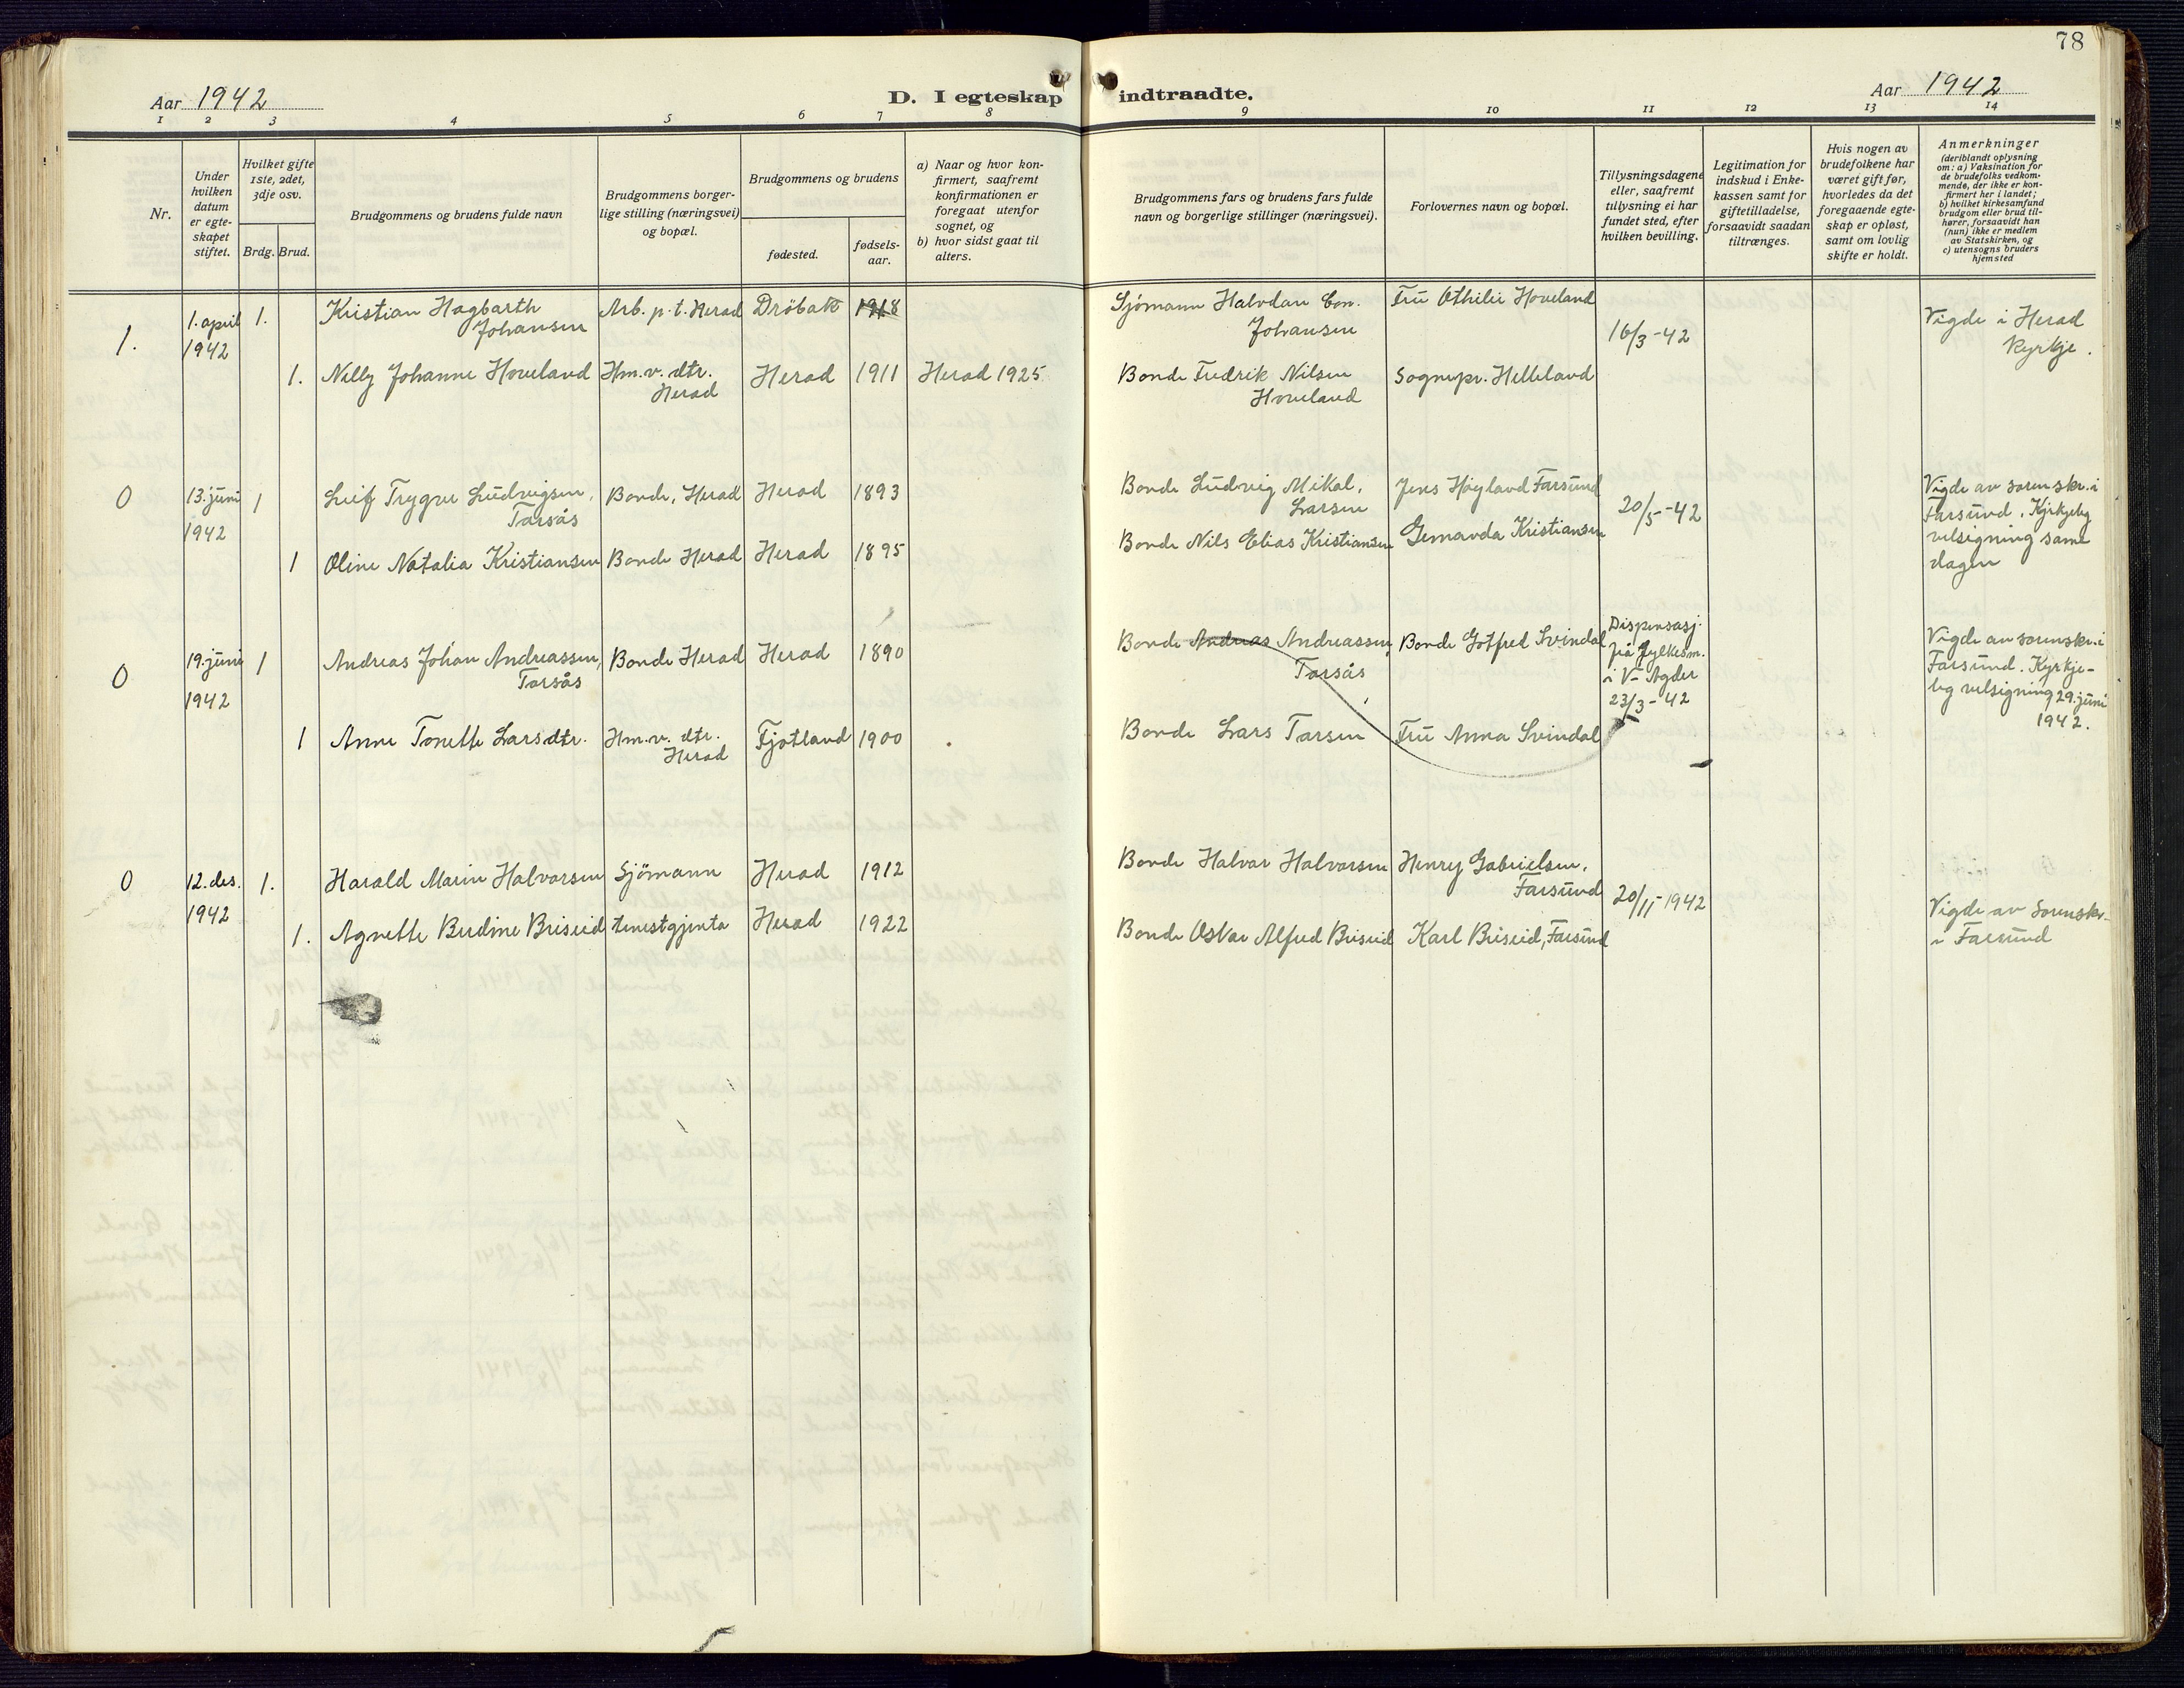 78
Aar 1942
D. I egteskap indtraadte.
Aar 1942
1 2 3 4 5 6 7 8 9 10 11 12 13 14
Nr.
Under
hvilken
datum
er egte-
skapet
stiftet.
Hvilket gifte
1ste, 2det,
3dje osv.
Brdg. Brud.
Brudgommens og brudens fulde navn
Brudgommens borger-
lige stilling (næringsvei)
og bopæl.
Brudgommens og brudens
fødested.
fødsels-
aar.
a) Naar og hvor kon-
firmert, saafremt
konfirmationen er
foregaat utenfor
sognet, og
b) hvor sidst gaat til
alters.
Brudgommens fars og brudens fars fulde
navn og borgerlige stillinger (næringsvei).
Forlovernes navn og bopæl.
Tillysningsdagene
eller, saafremt
tillysning ei har
fundet sted, efter
hvilken bevilling.
Legitimation for
indskud i Enke-
kassen samt for
giftetilladelse,
forsaavidt saadan
tiltrænges.
Hvis nogen av
brudefolkene har
været gift før,
hvorledes da det
foregaaende egte-
skap er opløst,
samt om lovlig
skifte er holdt.
Anmerkninger
(deriblandt oplysning
om: a) Vaksination for
de brudefolks vedkom-
mende, der ikke er kon-
firmert her i landet;
b) hvilket kirkesamfund
brudgom eller brud til-
hører, forsaavidt han
(hun) ikke er medlem
av Statskirken, og
c) utensogns bruders
hjemsted
1.
1. april
1942
1.
Kristian Hagbarth
Johansen
Arb. p.t. Herad
Drøbak
1918
Sjømann Halvdan Con.
Johansen
Frü Othilie Hoveland
16/3-42
Vigde i Herad
Kyrkje.
1.
Nelly Johanne Hoveland
Hm.v. dtr.
Herad
Herad
1911
Herad 1925
Bonde Fredrik Nilsen
Hoveland
Sognepr. Helleland
0
13. juni
1942
1
Leif Trygve Ludvigsen,
Tarsås
Bonde, Herad
Herad
1893
Bonde Ludvig Mikal,
Larsen
Jens Høyland Farsund
20/5-42
Vigde av sorenskr. i
Farsund. Kyrkjeleg
velsigning same
dagen
1
Oline Natalia Kristiansen
Bonde Herad
Herad
1895
Bonde Nils Elias Kristiansen
Gemanda Kristiansen
0
19. juni
1942
1
Andreas Johan Andreassen,
Tarsås
Bonde Herad
Herad
1890
Bonde Andreas Andreassen,
Tarsås
Bonde Gotfred Svindal
Dispensasj.
frå fylkesm.
i V-Agder
23/3-42
Vigde av sorenskr. i
Farsund. Kyrkje-
leg velsigning 29. juni
1942.
1
Anne Tonette Larsdtr.
Hm.v. dtr.
Herad
Fjotland
1900
Bonde Lars Tarsen
Frü Anna Svindal
0
12. des.
1942
1.
Harald Marin Halvorsen
Sjømann
Herad
1912
Bonde Halvor Halvorsen
Henry Gabrielsen,
Farsund
20/11-1942
Vigde av Sorenskr.
i Farsund
1.
Agnette Berdine Briseid
tenestgjenta
Herad
1922
Bonde Oskar Alfred Briseid
Karl Briseid, Farsund